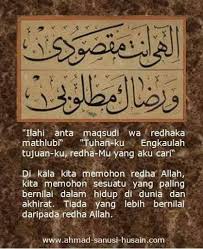 الهي انت مقصودي
ورضاك مطلوبي
"Ilahi anta maqsudi wa redhaka
mathlubi" "Tuhan-ku Engkaulah
tujuan-ku, redha-Mu yang aku cari"
Di kala kita memohon redha Allah,
kita memohon sesuatu yang paling
bernilai dalam hidup di dunia dan
akhirat. Tiada yang lebih bernilai
daripada redha Allah.
www.ahmad-sanusi-husain.com